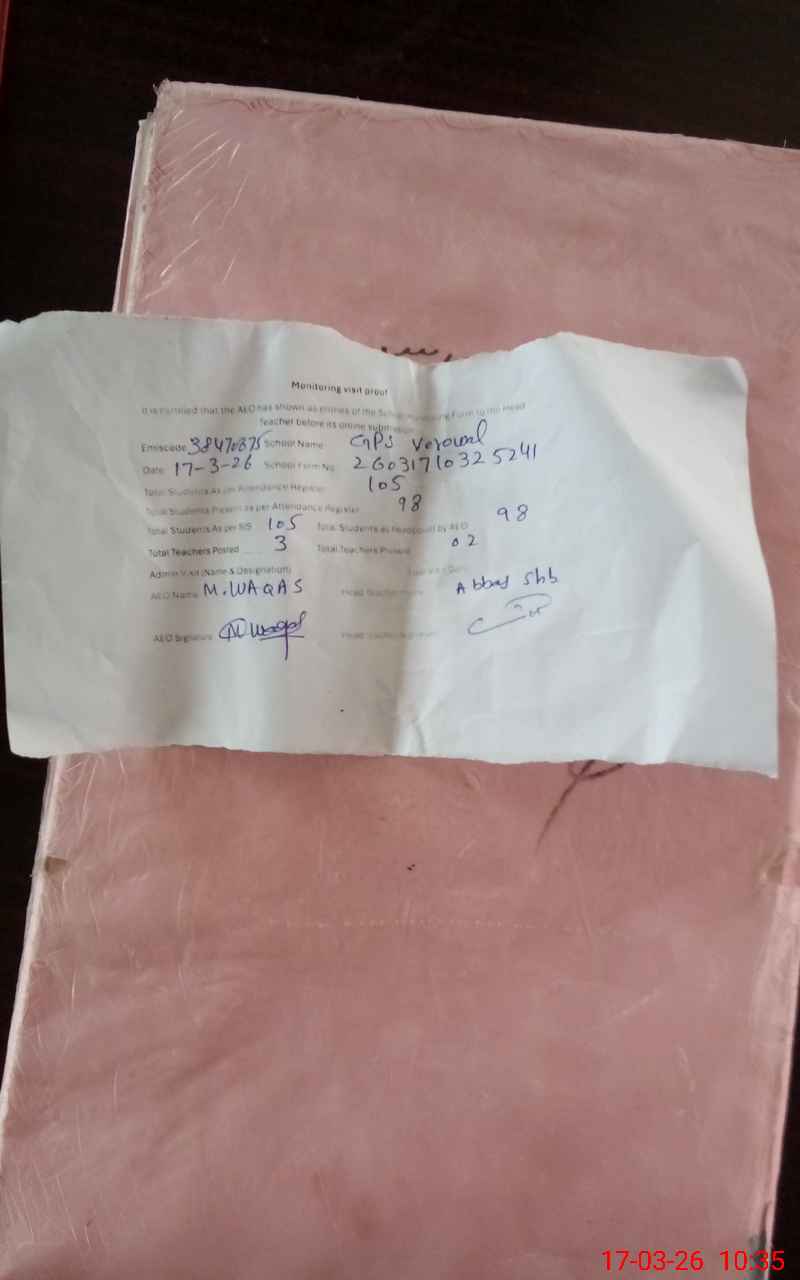 Monitoring visit proof
It is certified that the AEO has shown as entries of the School Monitoring Form to the Head
Teacher before its online submission
Emiscode 38470875 School Name GPS Verowal
Date 17-3-26 School Form No 26031710325241
Total Students As per Attendance Register 105
Total Students Present as per Attendance Register 98
Total Students As per SIS 105 Total Students as Headcount by AEO 98
Total Teachers Posted 3 Total Teachers Present 02
Admin Visit (Name & Designation)
AEO Name M.WAQAS Head Teacher Name Abbas Shb
AEO Signature M Waqas Head Teacher Signature
17-03-26 10:35